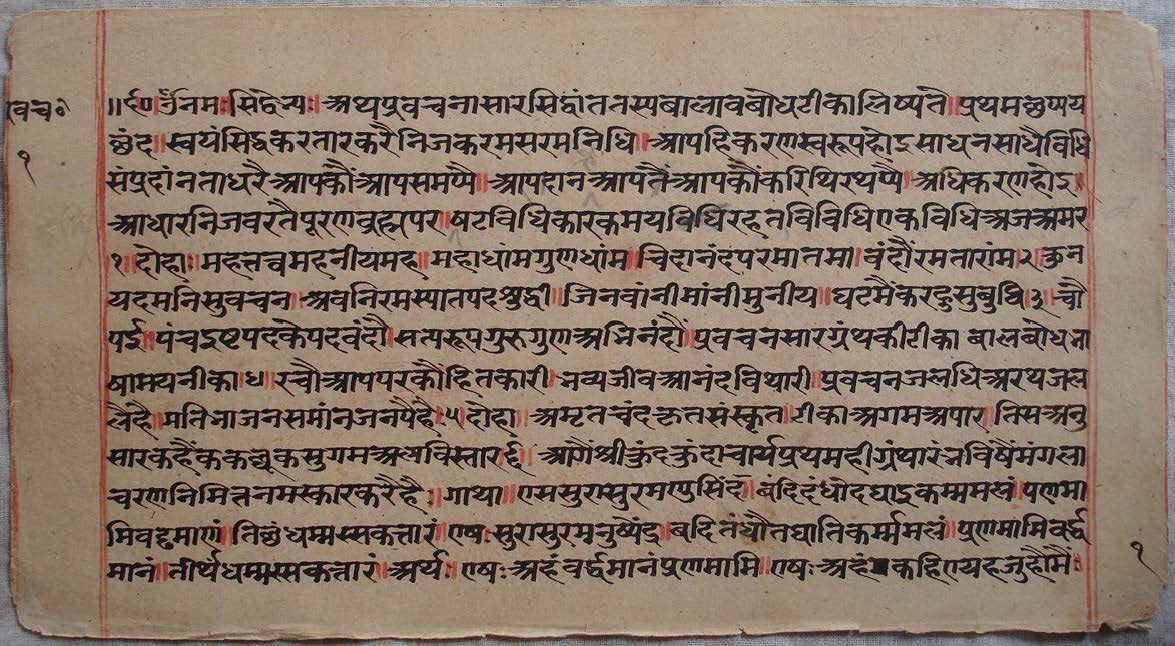 वच॰
१
॥ र्द॰॥ ॐ नमः सिद्धेभ्यः॥ अथ प्रवचनासारसिद्धांतनस्य बालावबोधटीका लिष्यते॥ प्रथमछप्पय
छंद॥ स्वयंसिद्धकरतारकरैनिजकरमसरमनिधि॥ आपहिकरणस्वरूपहोऽसाधनसाधैविधि
संप्रदांनताधरैआपकौंआपसमप्पै॥ आपदानआपतैंआपकौंकरिथिरथप्पै॥ अधिकरणहोऽ
आधारनिजवरतैपूरणब्रह्मपर॥ षटविधिकारकमयविधिरहतविविधिएकविधिअजअमर
१ दोहा॥ महत्तत्वमहनीयमह॥ महाधांमगुणधांम॥ चिदानंदपरमातमा॥ वंदौंरमतारांम २ कुन
यदमनिसुवचन॥ अवनिरमस्यातपदशुद्धी॥ जिनवांनीमांनीमुनीय॥ घटमैंकरहुसुबुधि ३ चौ
पर्इ॥ पंचइष्टपदकेपदवंदौ॥ सत्यरूपगुरुगुणअभिनंदौं॥ प्रवचनसारग्रंथकीटीका॥ बालबोधभा
षामयनीका ४॥ रचौंआपपरकौंहितकारी॥ भव्यजीवआनंदविथारी॥ प्रवचनजलधिअरथजल
लैहै॥ मतिभाजनसमांनजनपैहै॥ ५ दोहा॥ अमृतचंदकृतसंस्कृत॥ टीकाअगमअपार॥ तिसअनु
सारकहैंकककछूकसुगमअल्पविस्तार ६॥ आगैंश्रीकुंदकुंदाचार्यप्रथमहीग्रंथारंभविषैंमंगला
चरणनिमित्तनमस्कारकरैहै॥ गाथा॥ एससुरासुरमणुसिंद॥ वंदिदंधोदघाइकम्ममलं॥ पणमा
मिवड्ढमाणं॥ तित्थंधम्मस्सकत्तारं॥ एषः सुरासुरमनुष्यंद्र॥ वंदितंधौतघातिकर्म्ममलं॥ प्रणमामिवर्द्ध
मानं॥ तीर्थधम्मस्सकत्तारं॥ अर्थ॥ एषः अहंवर्द्धमानंप्रणमामि॥ एषः अहंकहिएयहजुहौंमैं॥
१